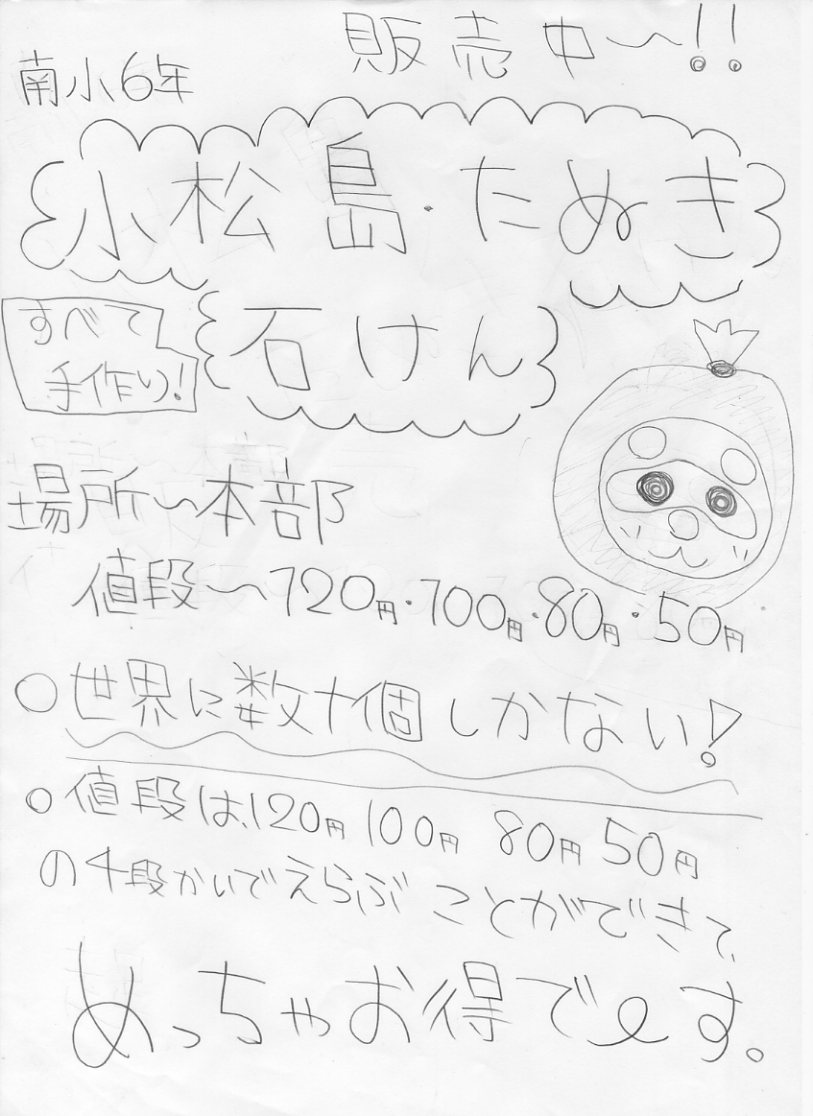 販売中〜!!
南小6年
小松島・たぬき
石けん
すべて
手作り!
場所〜本部
値段〜120円・100円・80円・50円
○世界に数十個しかない!
○値段は、120円 100円 80円 50円
の4段かいでえらぶことができて、
めっちゃお得でesす。